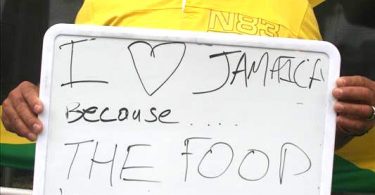 N83
I ♡ JAMAICA
Becouse ....
THE FOOD